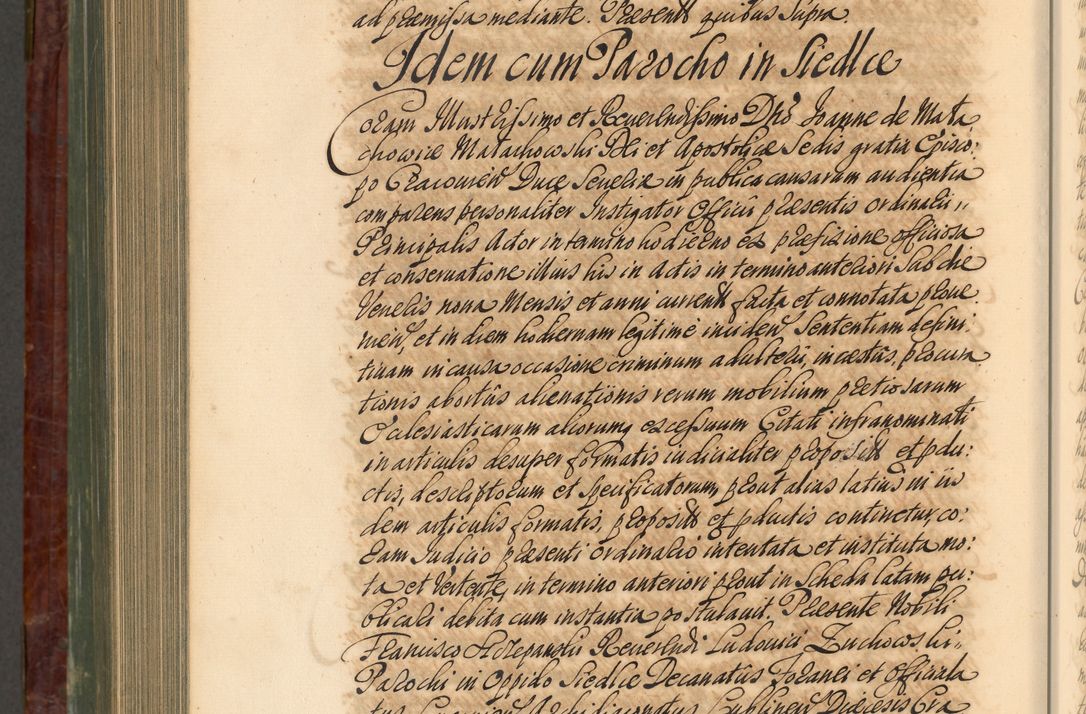 ad præmissa mediante. Præsentt quibus supra.
Idem cum Parocho in Siedlce
Coram Illustrissimo et Reuerendissimo Dno Joanne de Mała
chowice Małachowski Dei et Apostolicæ Sedis gratia Episco:
po Cracouien Duce Seueriæ in publica causarum audientia
comparens personaliter Instigator Officii præsentis ordinarii,,
Principalis Actor in termino hodierno ex præfixione officiosa
et conseruatione illius hic in Actis in termino anteriori Sab die
Veneris nona Mensis et anni currentt facta et connotata proue
nien, et in diem hodiernam legitime inciden Sententiam defini
tiuam in causa occasione criminum adulterii, incæstus, procura
tionis abortûs alienationis rerum mobilium prætiosarum
Ecclesiasticarum aliorumq excessuum Citati infranominati
in articulis desuper formatis iudicialiter propositt et pdu:
ctis, descriptorum et specificatorum, prout alias latius in iis
dem articulis formatis, propositt et pductis continetur, co:
ram Judicio præsenti ordinario intentata et instituta mo:
ta et Vertente, in termino anteriori prout in Scheda latam pu:
blicari debita cum instantia postulauit. Præsente Nobili
Francisco Reuerendi Ludouici Zuchowski,,
Parochi in Oppido Siedlce Decanatûs Foranei et Officiala
tus Archidiaconatus Lublinen Diæcesis Cra